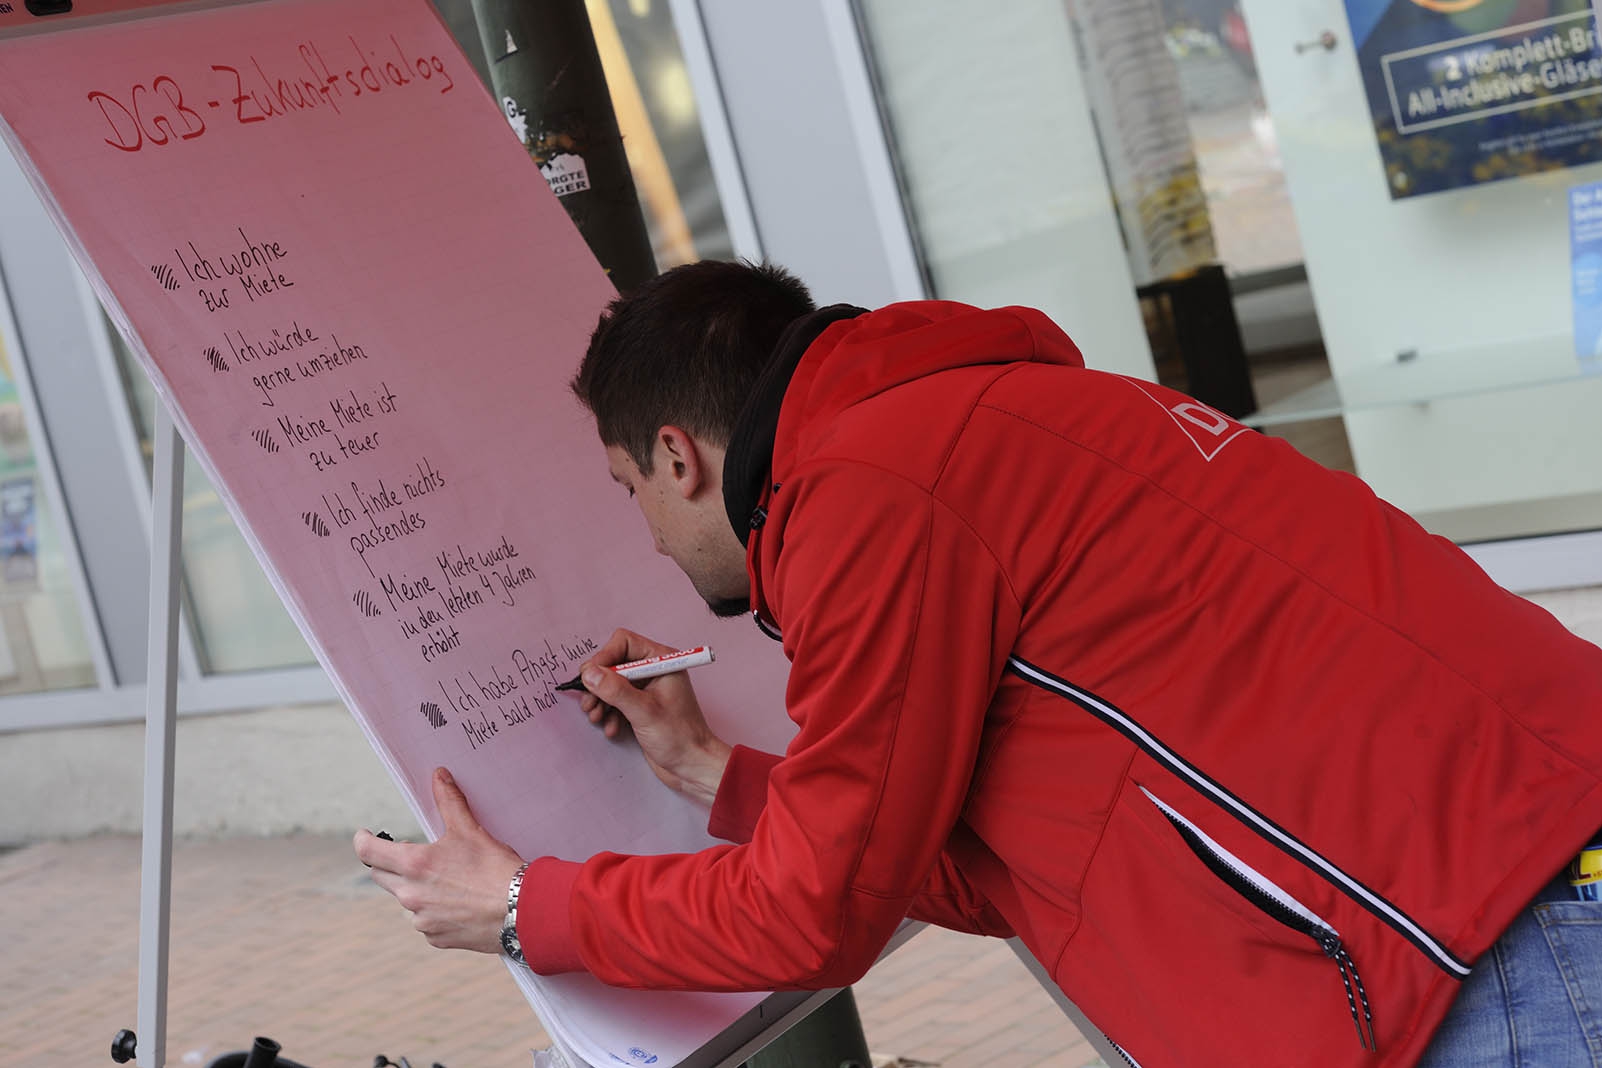 DGB-Zukunftsdialog
Ich wohne
zur Miete
Ich würde
gerne umziehen
Meine Miete ist
zu teuer
Ich finde nichts
passendes
Meine Miete wurde
in den letzten 4 Jahren
erhöht
Ich habe Angst, meine
Miete bald nich
2 Komplett-Bri
All-Inclusive-Gläse
ORGTE
GER
edding 3000